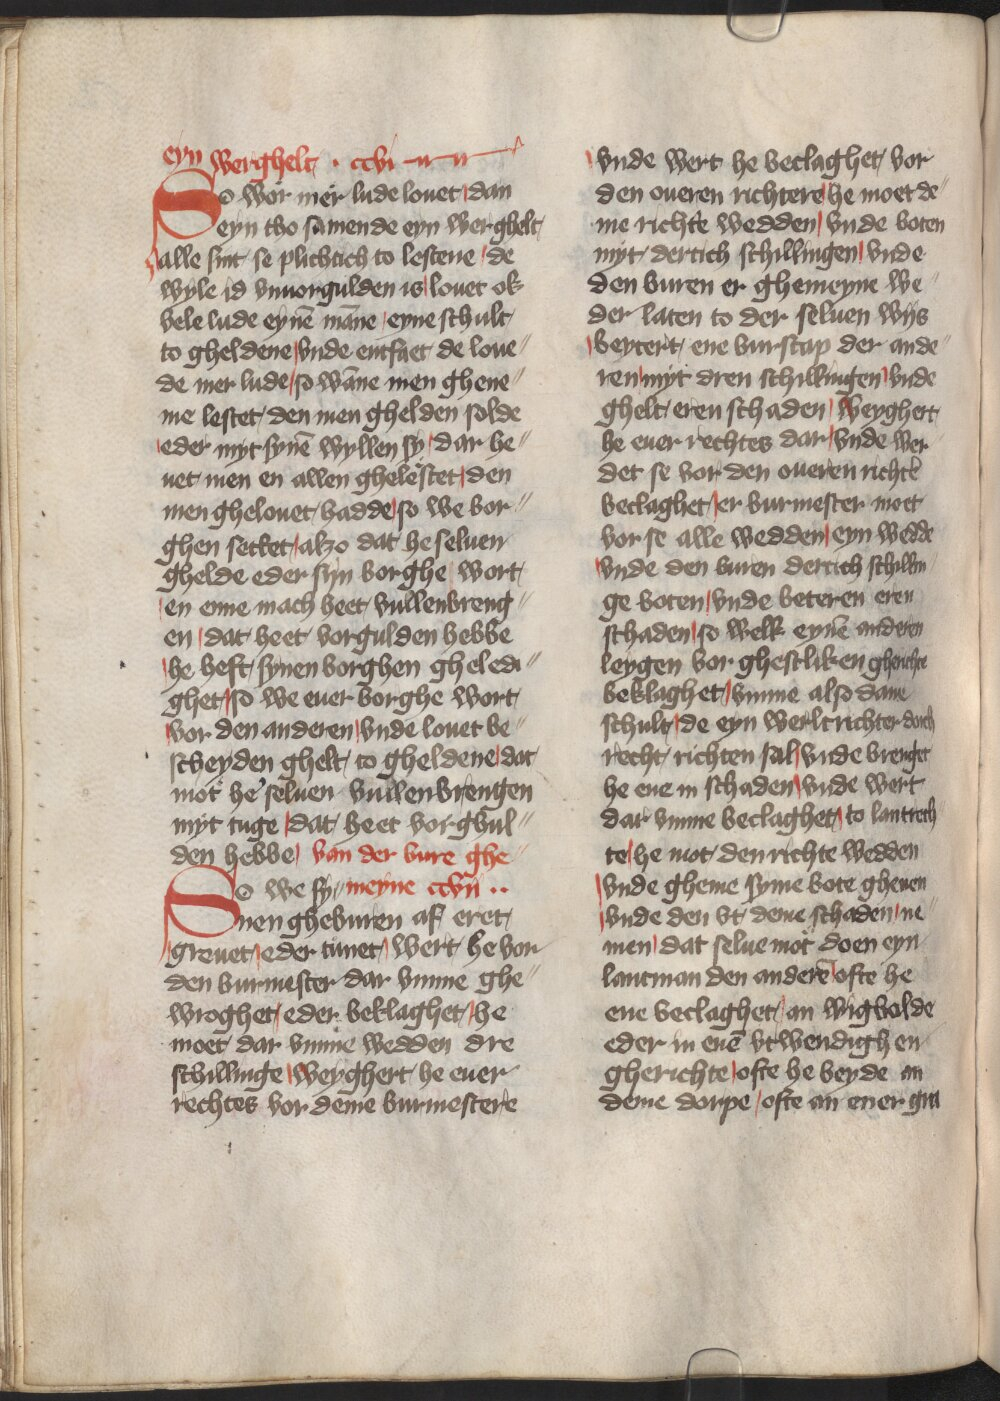 eyn werghelt · ccvi
So wor mer lude louet dan
eyn tho samende eyn werghelt
alle sint se plichtich to lestene de
wyle id vnuorgulden is louet ok
vele lude eynē māne eyne schult
to gheldene vnde entfaet de loue〃
de mer lude so wāne men ghene〃
me lestet den men ghelden solde
eder myt synē wyllen sy dar he〃
uet men en allen ghelestet den
men ghelouet hadde so we bor〃
ghen settet alzo dat he seluen
ghelde eder syn borghe wort
en enne mach heet vullenbreng〃
en dat heet vorgulden hebbe
he heft synen borghen gheledi〃
ghet so we euer borghe wort
vor den anderen vnde louet be〃
scheyden ghelt to gheldene dat
mot he seluen vullenbrengen
myt tuge dat heet vorghul〃
den hebbe van der bure ghe〃
So we sy〃 meyne ccvii ··
nen gheburen af eret
greuet eder tunet wert he vor
den burmester dar vmme ghe〃
wroghet eder beklaghet he
moet dar vmme wedden dre
schillinge weyghert he euer
rechtes vor deme burmestere
vnde wert he beclaghet vor
den oueren richtere he moet de〃
me richte wedden vnde boten
myt dertich schillingen vnde
den buren er ghemeyne we〃
der laten to der seluen wijs
beytert ene burscap der ande〃
ren myt dren schillingen vnde
ghelt eren schaden weyghert
he euer rechtes dar vnde wer〃
det se vor den oueren richtē
beclaghet er burmester moet
vor se alle wedden eyn wedde
vnde den buren dertich schillin〃
ge boten vnde beteren eren
schaden so welk eynē anderen
leygen vor ghestliken gherichte
beklaghet vmme also dane
schult de eyn werltrichter dorch
recht richten sal vnde brenget
he ene in schaden vnde wert
dar vmme beclaghet to lantrech〃
te he mot den richte wedden
vnde gheme syme bote gheuen
vnde den vt deme schaden ne〃
men dat selue mot doen eyn
lantman den anderē ofte he
ene beclaghet an wigbolde
eder in enē vtwendighen
gherichte ofte he beyde an
deme dorpe ofte an ener gra